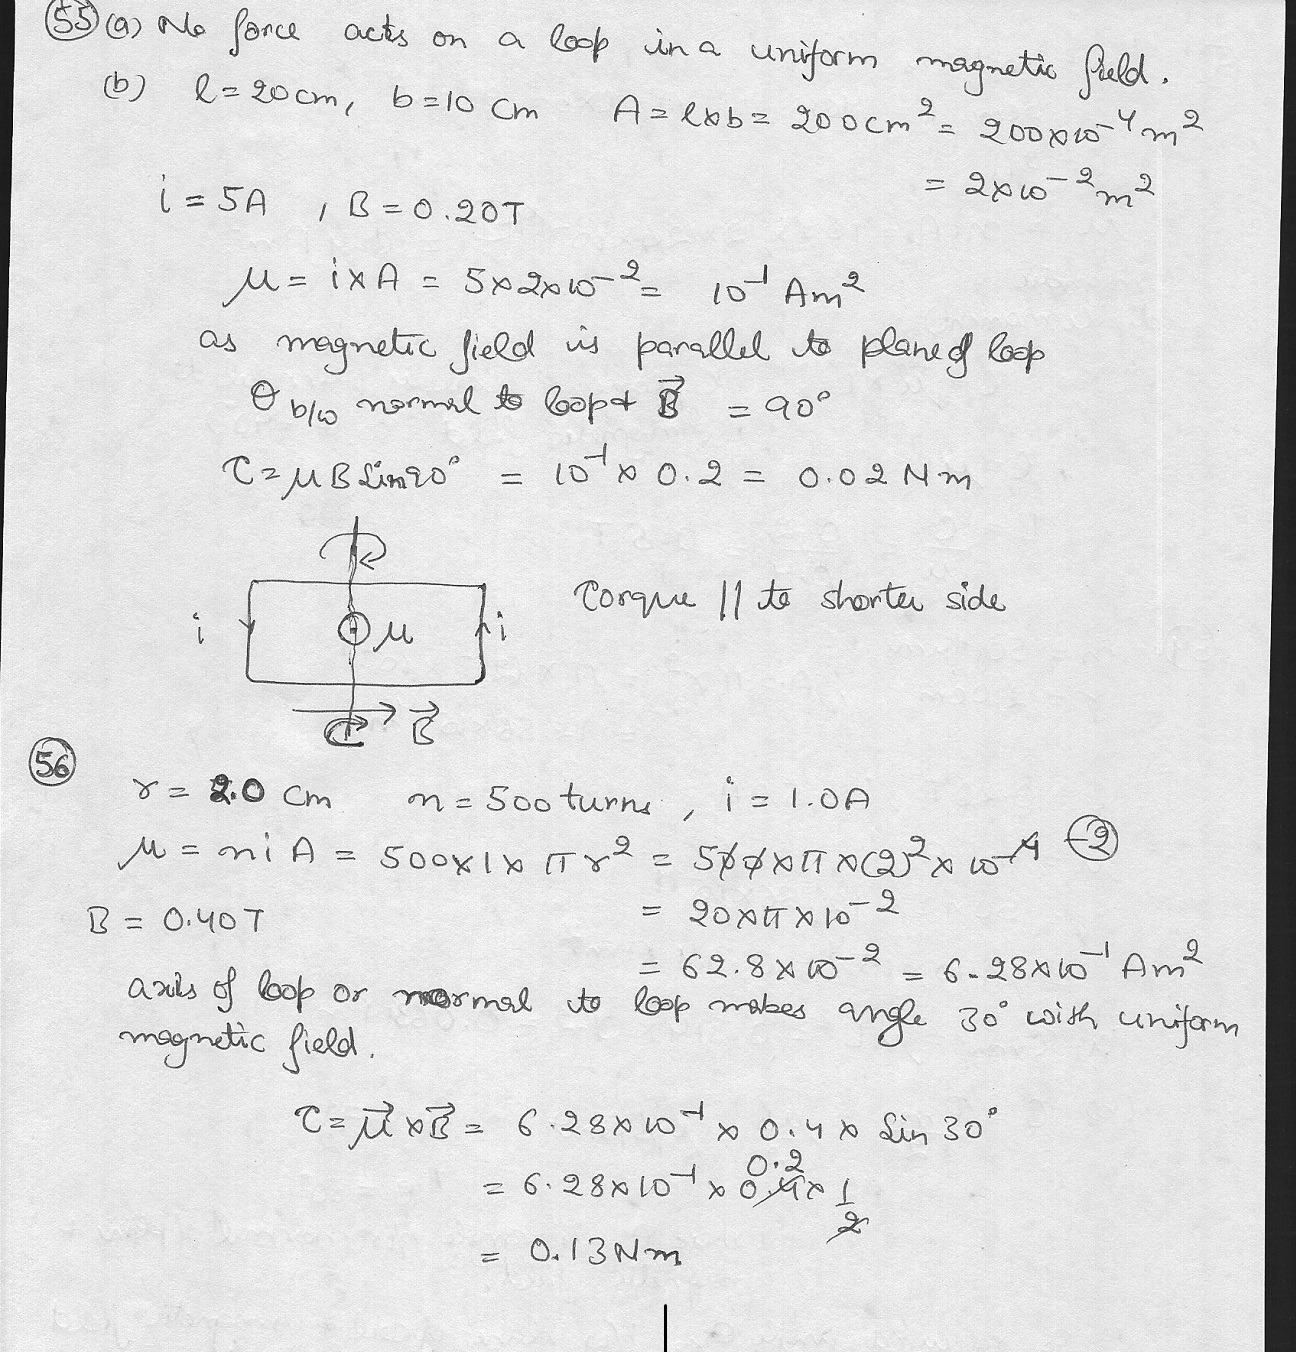 55 (a) No force acts on a loop in a uniform magnetic field.
(b) l = 20 cm, b = 10 cm A = l×b = 200 cm² = 200×10⁻⁴ m²
= 2×10⁻² m²
i = 5A , B = 0.20T
μ = i×A = 5×2×10⁻² = 10⁻¹ Am²
as magnetic field is parallel to plane of loop
θ b/w normal to loop & B⃗ = 90°
τ = μ B Sin 90° = 10⁻¹ × 0.2 = 0.02 Nm
i μ i
Torque || to shorter side
B⃗
56
r = 2.0 cm n = 500 turns , i = 1.0A
μ = n i A = 500×1×πr² = 500×π×(2)²×10⁻⁴ -2
B = 0.40T = 20×π×10⁻²
= 62.8×10⁻² = 6.28×10⁻¹ Am²
axis of loop or normal to loop makes angle 30° with uniform
magnetic field.
τ = μ⃗ × B⃗ = 6.28×10⁻¹ × 0.4 × Sin 30°
0.2
= 6.28×10⁻¹ × 0.4 × 1/2
= 0.13 Nm